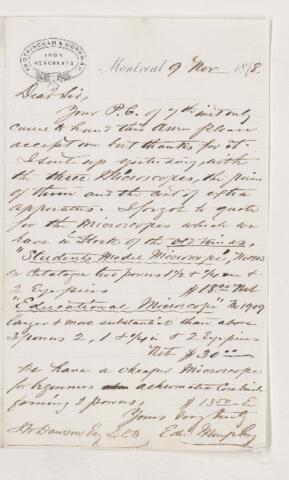 FROTHINGHAM & WORKMAN
IRON MERCHANTS
Montreal 9 Nov 1878
Dear Sir,
Your P.C. of 7th inst only
came to hand this A.M. please
accept our best thanks for it.
I sent up yesterday, with
the three Microscopes, the prices
of them and the cost of extra
apparatus. I forgot to quote
for the Microscopes which we
have in Stock of the old kinds,
"Students Model Microscope",
in Catalogue two powers 1/2 & 1/4 in &
2 Eye pieces $18.00 Net
"Educational Microscope" No 1909
larger & more substantial than above
3 powers 2, 1 & 1/4 in & 2 Eye pieces
Net $30.00
We have a cheaper Microscope
for beginners achromatic Combinat
forming 2 powers, $13.50
Yours very truly
Dawson Esq LLD Edw Murphy